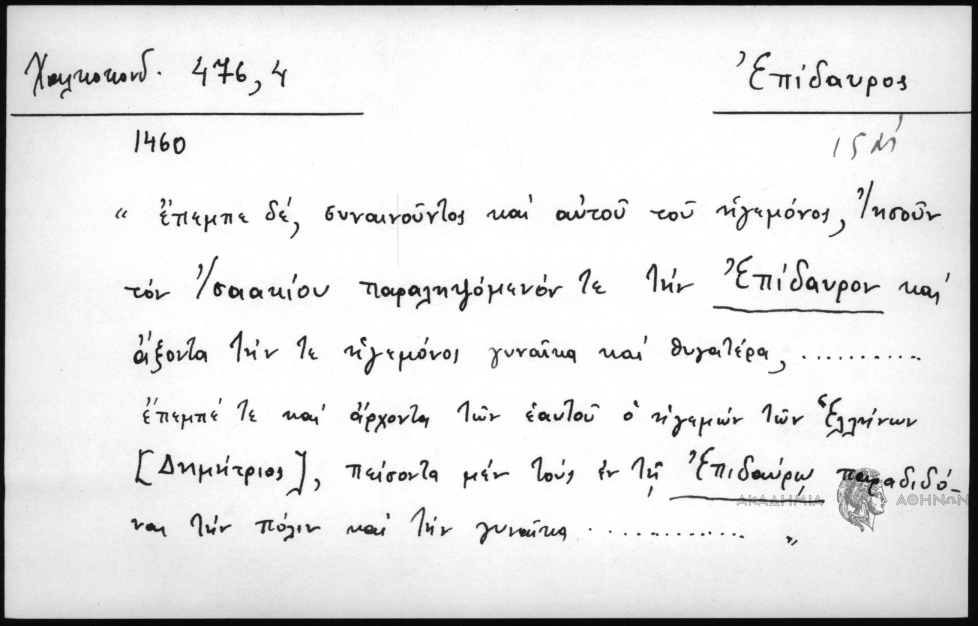 Χαλκοκονδ. 476, 4
Ἐπίδαυρος
1460
15
“ ἔπεμπε δέ, συναινοῦντος καὶ αὐτοῦ τοῦ ἡγεμόνος, Ἰησοῦν
τόν Ἰσαακίου παραληψόμενόν τε τὴν Ἐπίδαυρον καὶ
ἄξοντα τήν τε ἡγεμόνος γυναῖκα καὶ θυγατέρα, ..........
ἔπεμπέ τε καὶ ἄρχοντα τῶν ἑαυτοῦ ὁ ἡγεμών τῶν Ἑλλήνων
[Δημήτριος], πείσοντα μέν τούς ἐν τῇ Ἐπιδαύρῳ παραδιδό-
ναι τήν πόλιν καὶ τήν γυναῖκα .............. „
ΑΚΑΔΗΜΙΑ ΑΘΗΝΩΝ